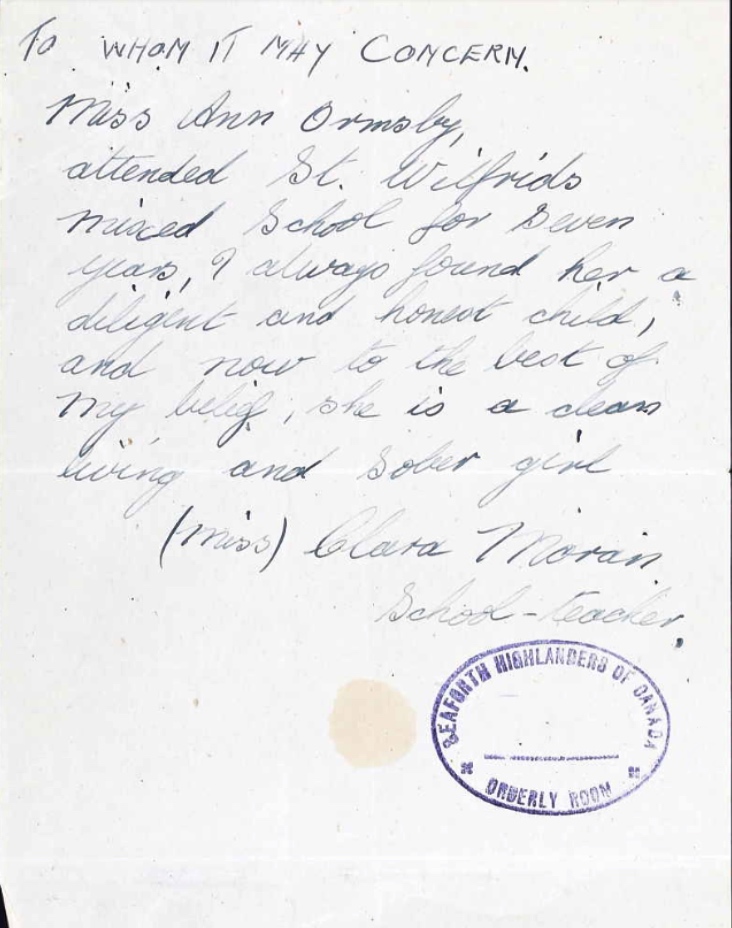 To WHOM IT MAY CONCERN.
Miss Ann Ormsby,
attended St. Wilfrids
mixed School for Seven
years, I always found her a
diligent and honest child,
and now to the best of
my belief, she is a clean
living and sober girl
(Miss) Clara Moran
School-teacher.
SEAFORTH HIGHLANDERS OF CANADA
ORDERLY ROOM